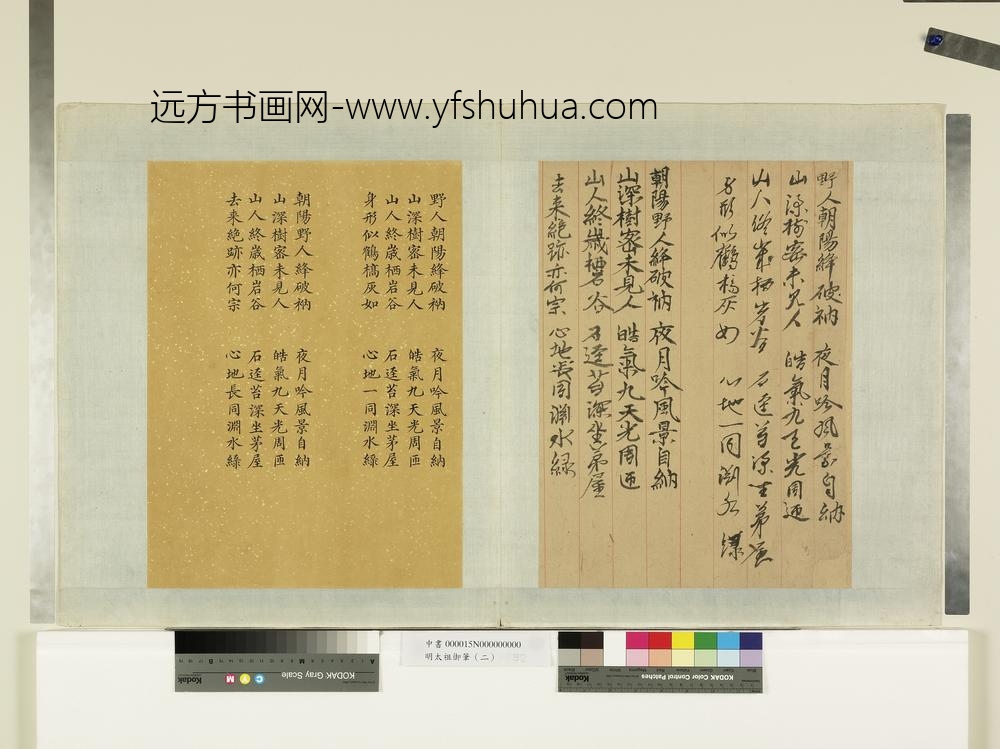 远方书画网-www.yfshuhua.com
野人朝陽絳破衲 夜月吟風景自納
山深樹密未見人 皓氣九天光周匝
山人終歲栖岩谷 石逕苔深坐茅屋
身形似鶴槁灰如 心地一同淵水綠
朝陽野人絳破衲 夜月吟風景自納
山深樹密未見人 皓氣九天光周匝
山人終歲栖岩谷 石逕苔深坐茅屋
去來絕跡亦何宗 心地長同淵水綠
野人朝陽絳破衲 夜月吟風景自納
山深樹密未見人 皓氣九天光周匝
山人終歲栖岩谷 石逕苔深坐茅屋
身形似鶴槁灰如 心地一同淵水綠
朝陽野人絳破衲 夜月吟風景自納
山深樹密未見人 皓氣九天光周匝
山人終歲栖岩谷 石逕苔深坐茅屋
去來絕跡亦何宗 心地長同淵水綠
中書000015N000000000
明太祖御筆(二)
Kodak
KODAK Gray Scale
C Y M
A M B
Kodak
KODAK Color Control Patches